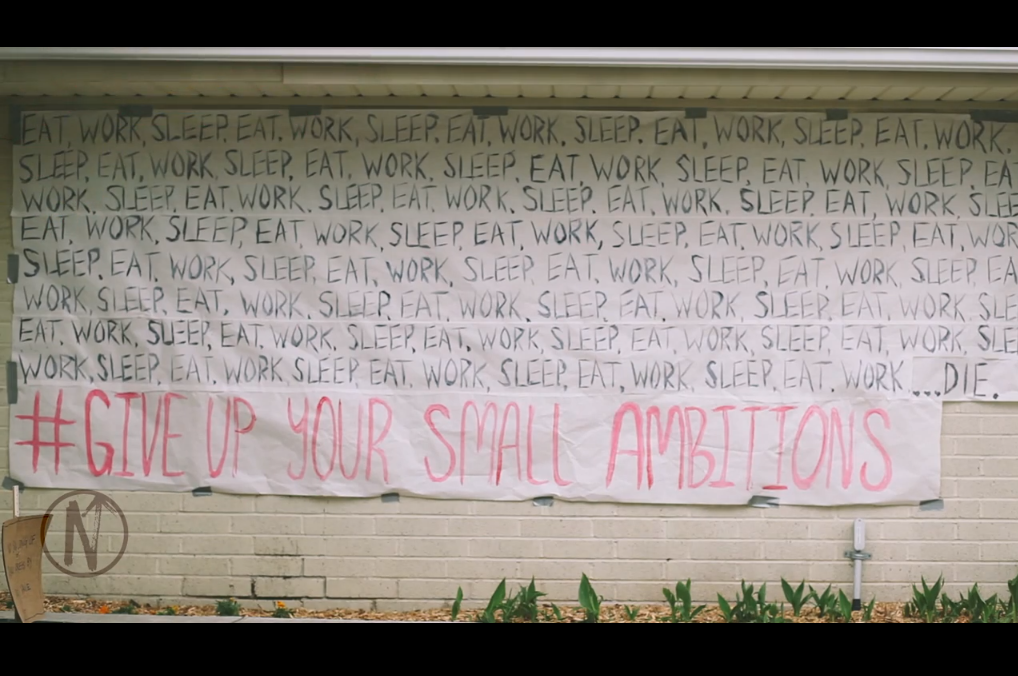 EAT, WORK, SLEEP. EAT. WORK, SLEEP. EAT, WORK, SLEEP. EAT, WORK, SLEEP. EAT. WORK.
SLEEP, EAT, WORK, SLEEP, EAT, WORK. SLEEP. EAT, WORK, SLEEP. EAT, WORK, SLEEP. EA
WORK. SLEEP, EAT. WORK. SLEEP. EAT. WORK. SLEEP. EAT, WORK. SLEEP EAT, WORK, SLEE
EAT, WORK, SLEEP, EAT WORK, SLEEP EAT, WORK, SLEEP, EAT, WORK, SLEEP, EAT, WOR
SLEEP. EAT, WORK, SLEEP. EAT, WORK, SLEEP. EAT, WORK, SLEEP, EAT WORK, SLEEP, EA
WORK, SLEEP. EAT, WORK, SLEEP. EAT, WORK, SLEEP, EAT, WORK, SLEEP. EAT, WORK, SLE
EAT, WORK, SLEEP, EAT. WORK, SLEEP, EAT, WORK, SLEEP, EAT, WORK, SLEEP, EAT, WORK, SLE
WORK, SLEEP, EAT, WORK SLEEP, EAT, WORK, SLEEP, EAT, WORK, SLEEP, EAT. WORK ...DIE.
#GIVE UP YOUR SMALL AMBITIONS
N